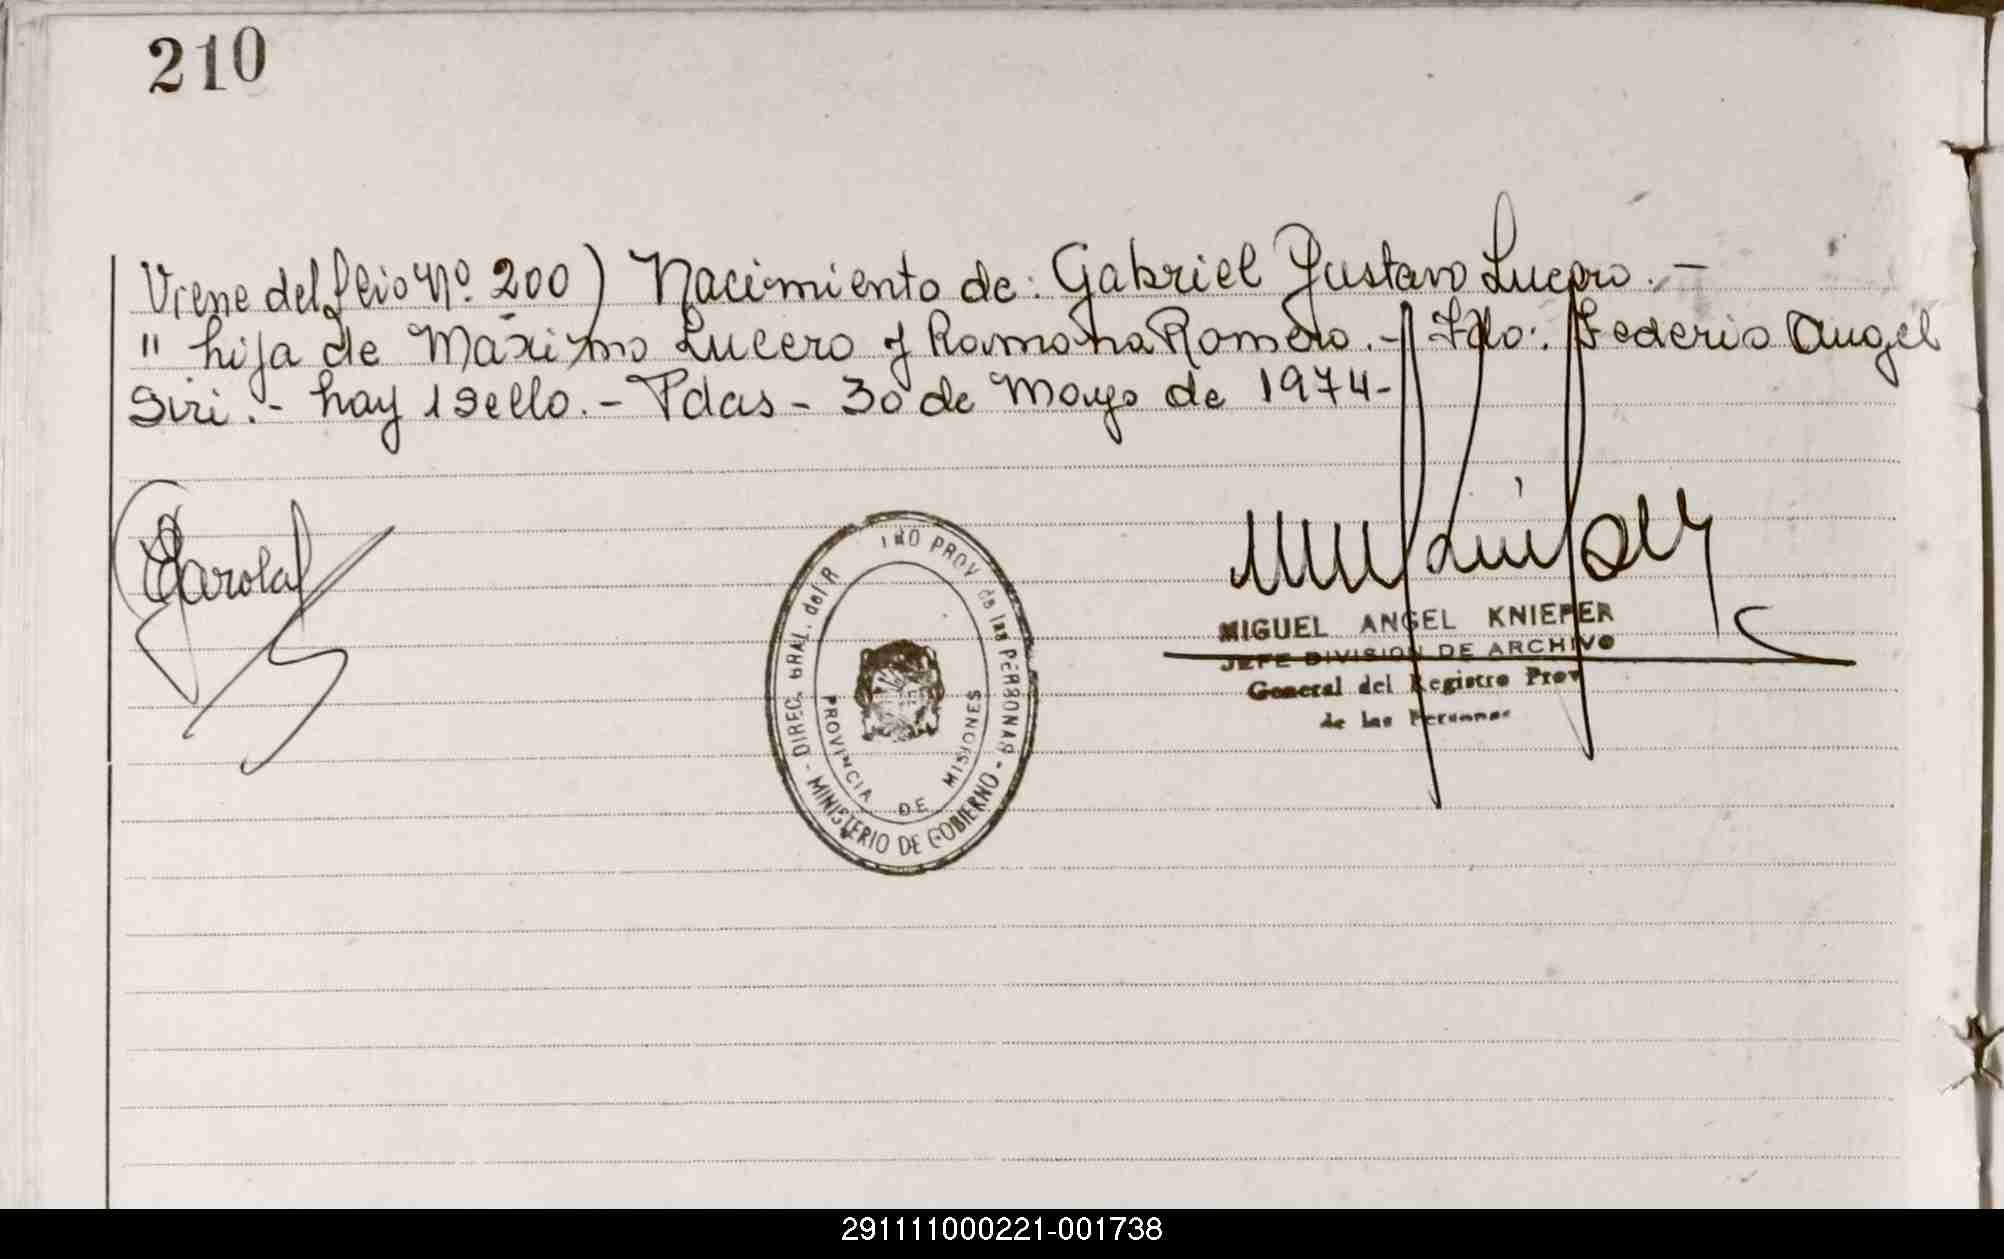 210
Viene del folio Nº 200) Nacimiento de: Gabriel Gustavo Lucero. -
" hija de Máximo Lucero y Ramona Romero. - Fdo: Federico Angel
Siri. - hay 1 sello. - Pdas - 30 de Mayo de 1974-
DIREC. GRAL. del R TRO PROV de las PERSONAS - MINISTERIO DE GOBIERNO -
PROVINCIA DE MISIONES
MIGUEL ANGEL KNIEPER
JEFE DIVISION DE ARCHIVO
General del Registro Prov
de las Personas
291111000221-001738